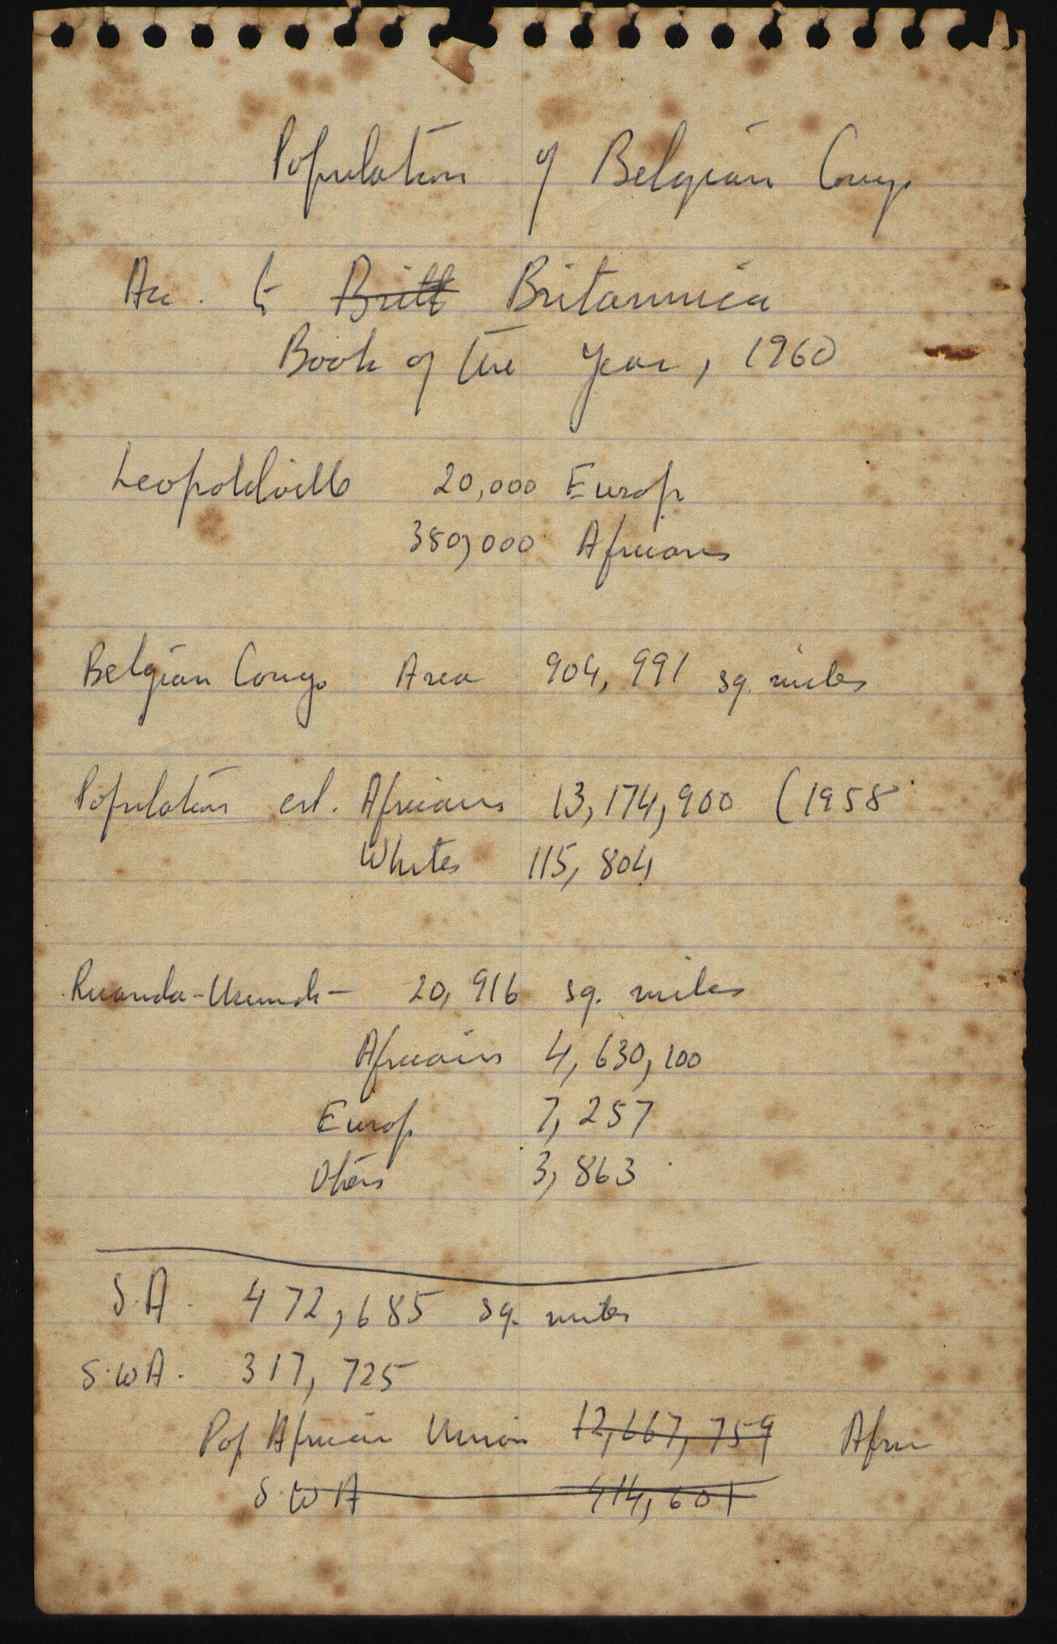 Population of Belgian Congo
Acc. to Britt Britannica
Book of the Year, 1960
Leopoldville 20,000 Europ
380,000 Africans
Belgian Congo Area 904,991 sq. miles
Population est. Africans 13,174,900 (1958
Whites 115,804
Ruanda-Urundi - 20,916 sq. miles
Africans 4,630,100
Europ. 7,257
Others 3,863
S.A. 472,685 sq. miles
S.W.A. 317,725
Pop African Union 12,667,759 Afric
S.W A 414,601